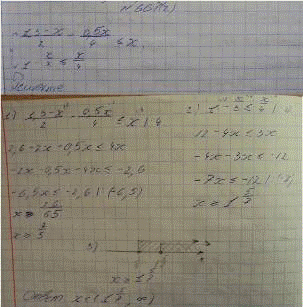 N 661(2)
1,3-x/2 - 0,5x/4 ≤ x,
1 - x/2 ≤ x/4
Решение
1) 1,3-x/2 - 0,5x/4 ≤ x | 4
2,6-2x-0,5x ≤ 4x
-2x-0,5x-4x ≤ -2,6
-6,5x ≤ -2,6 | (-6,5)
x = 26/65
x = 2/5
2)
12-4x ≤ 3x
-4x-3x ≤ -12
-7x ≤ -12
x ≥ 1 5/7
3)
x ≥ 1 5/7
Ответ: x ∈ [1 5/7, ∞)